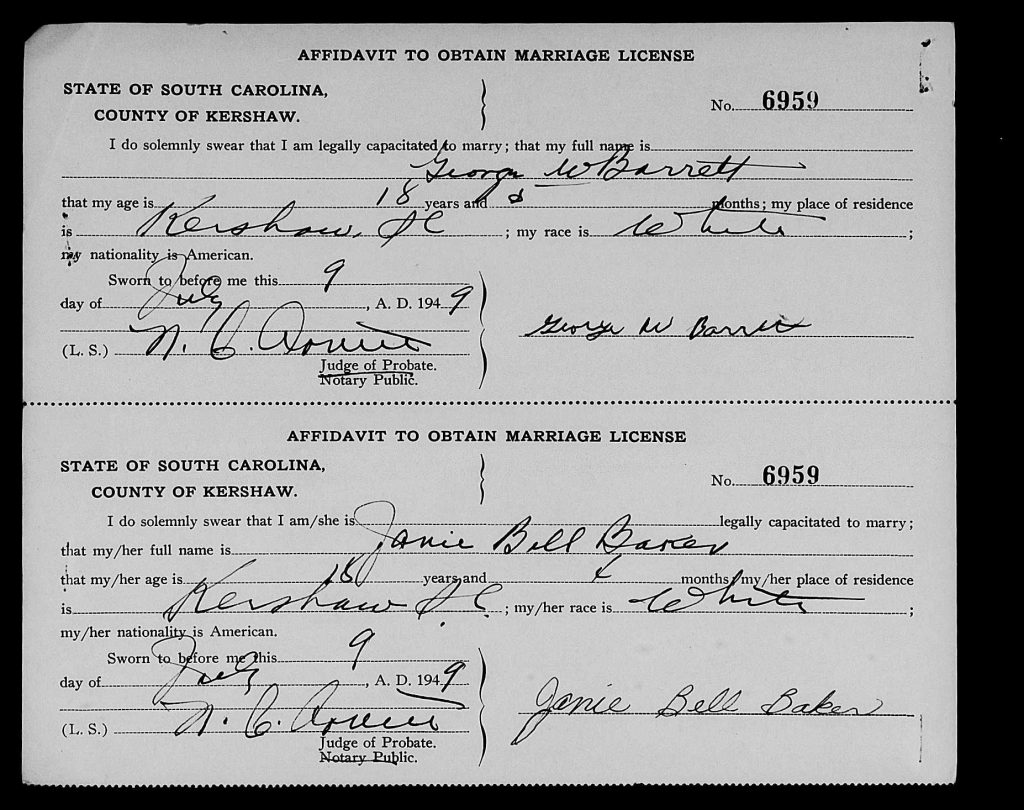 AFFIDAVIT TO OBTAIN MARRIAGE LICENSE
STATE OF SOUTH CAROLINA,
COUNTY OF KERSHAW.
No. 6959
I do solemnly swear that I am legally capacitated to marry; that my full name is
George W Barrett
that my age is 18 years and months; my place of residence
is Kershaw, SC ; my race is White ;
my nationality is American.
Sworn to before me this 9
day of July, A. D. 1949
George W Barrett
(L. S.) N. C.
Judge of Probate.
Notary Public.
AFFIDAVIT TO OBTAIN MARRIAGE LICENSE
STATE OF SOUTH CAROLINA,
COUNTY OF KERSHAW.
No. 6959
I do solemnly swear that I am/she is legally capacitated to marry;
that my/her full name is Janie Bell Baker
that my/her age is 18 years and months; my/her place of residence
is Kershaw S.C. ; my/her race is White ;
my/her nationality is American.
Sworn to before me this 9
day of July, A. D. 1949
Janie Bell Baker
(L. S.) N. C.
Judge of Probate.
Notary Public.